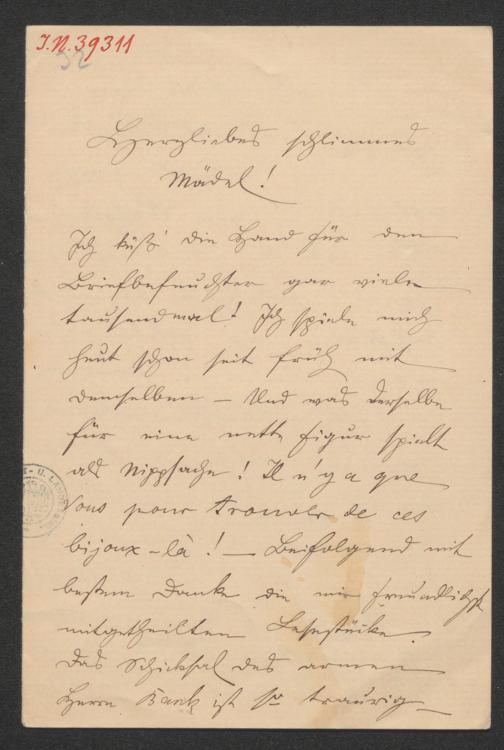 I.N. 39311
52
Herzliebes schlimmes
Mädel!
Ich küß' die Hand für den
Briefbefeuchter gar viele
tausendmal! Ich spiele mich
heut schon seit früh mit
demselben – Und was derselbe
für eine nette Figur spielt
als Nippsache! Il n'y a que
Vous pour trouver de ces
bijoux-là! – Beifolgend mit
bestem Danke die mir freundlichst
mitgetheilten Lesestücke.
Das Schicksal des armen
Herrn Bank ist so traurig